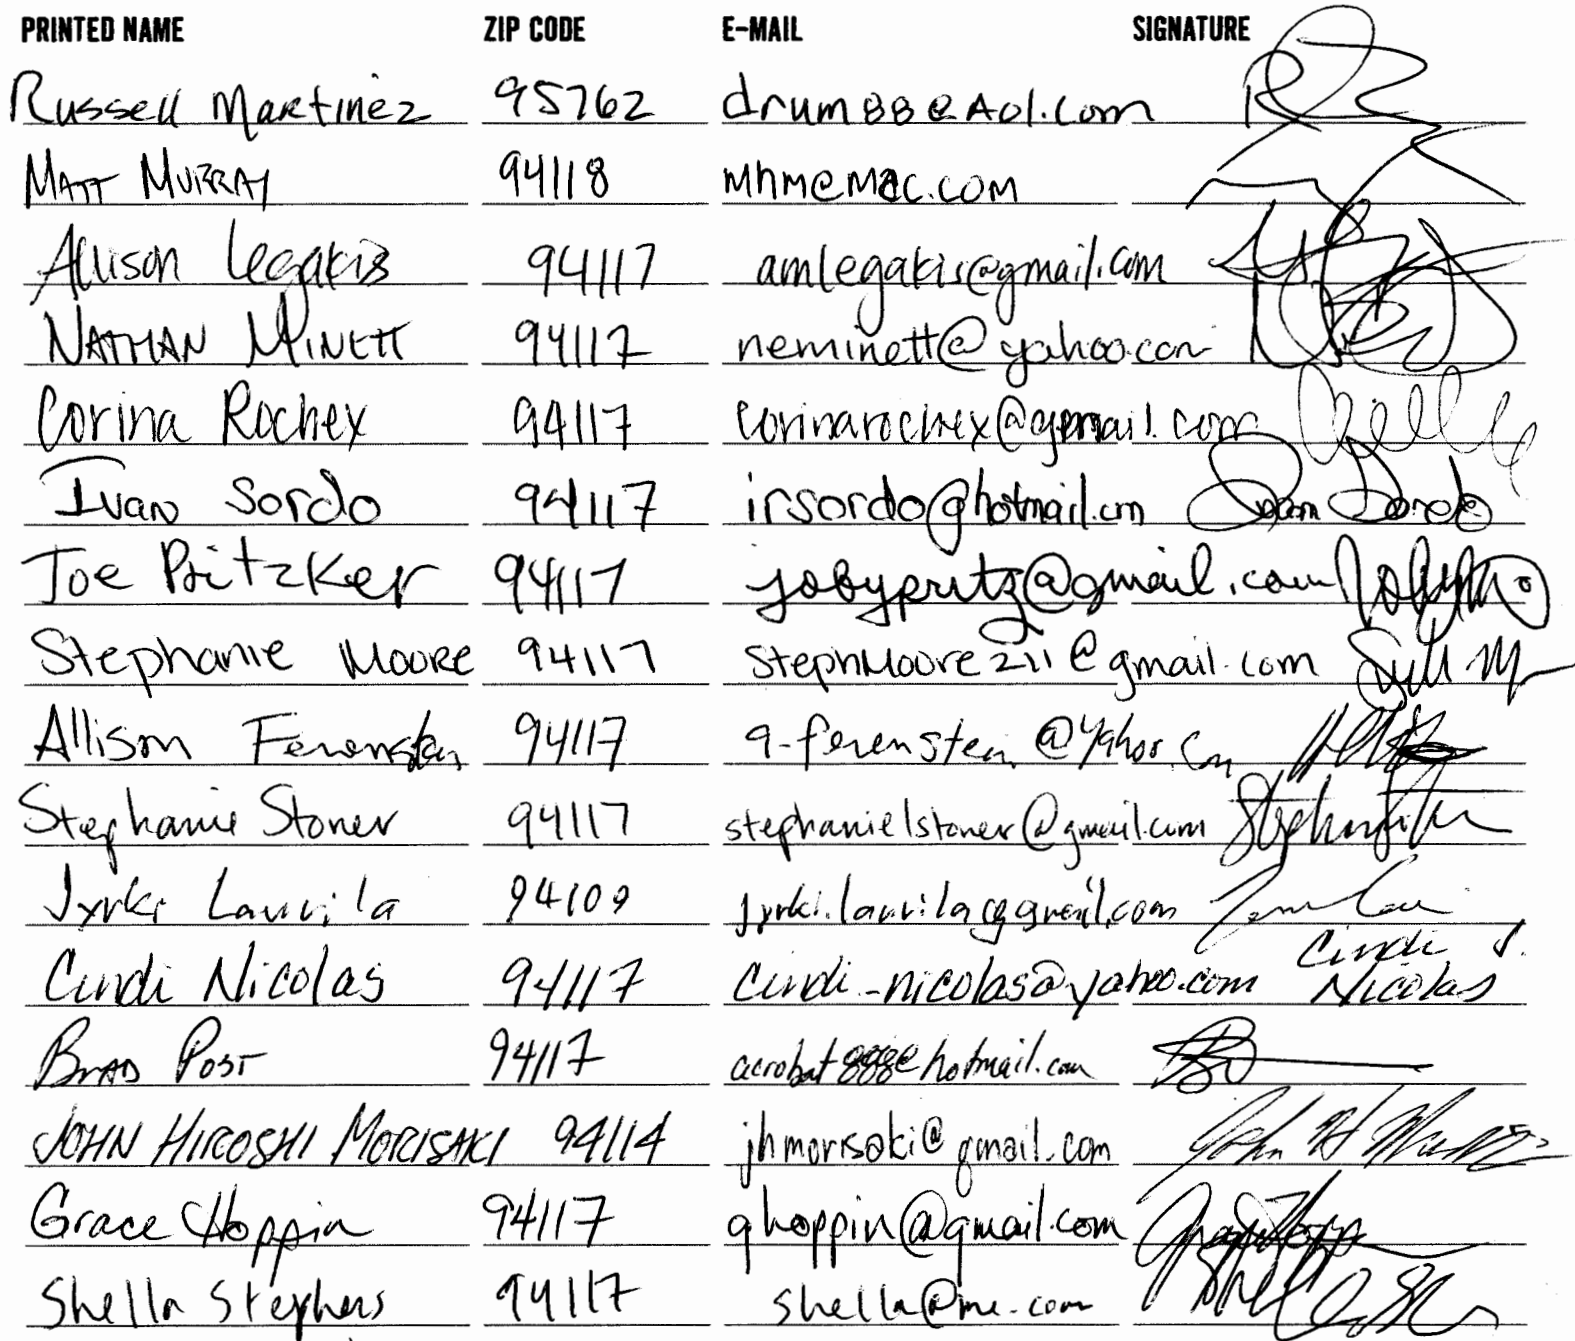 PRINTED NAME ZIP CODE E-MAIL SIGNATURE
Russell Martinez 95762 drum88@Aol.com
MATT MURRAY 94118 mhm@mac.com
Allison Legakis 94117 amlegakis@gmail.com
NATHAN MINETT 94117 neminett@yahoo.com
Corina Rochex 94117 corinarochex@gmail.com
Ivan Sordo 94117 irsordo@hotmail.com Ivan Sordo
Joe Pritzker 94117 jobypritz@gmail.com
Stephanie Moore 94117 stephmoore211@gmail.com
Allison Ferenstein 94117 a-ferenstein@yahoo.com
Stephanie Stoner 94117 stephanielstoner@gmail.com
Jyrki Laurila 94109 jyrki.laurila@gmail.com
Cindi Nicolas 94117 cindi_nicolas@yahoo.com Cindi J. Nicolas
BRAD POST 94117 acrobat888@hotmail.com
JOHN HIROSHI MORISAKI 94114 jhmorisaki@gmail.com
Grace Hoppin 94117 ghoppin@gmail.com
Shella Stephens 94117 shella@me.com